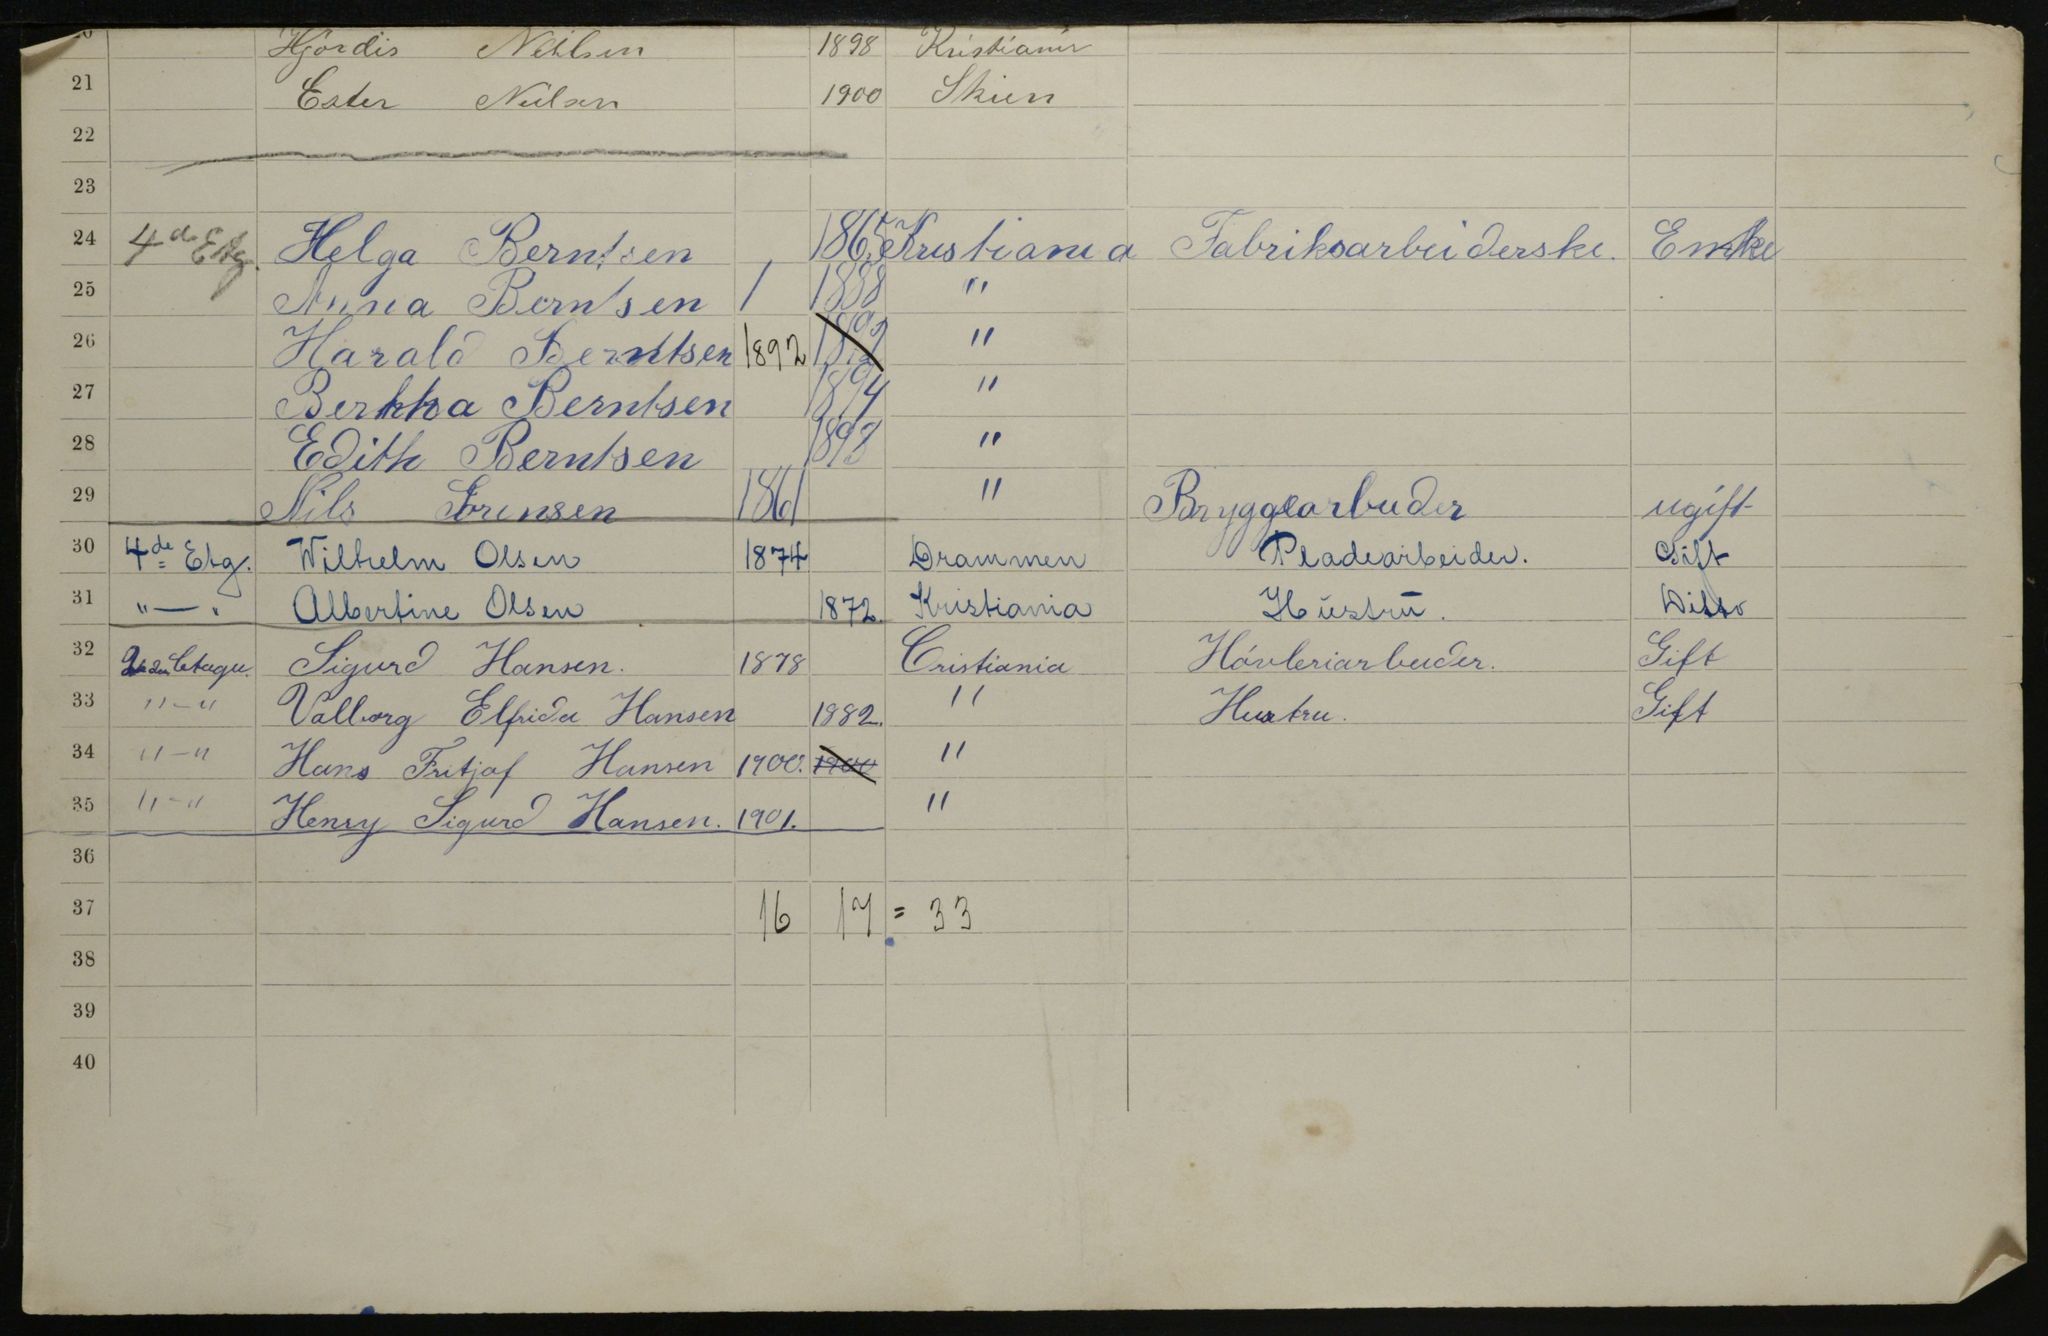 Hjördis Nehlsen 1898 Kristiania
21 Ester Nielsen 1900 Skien
22
23
24 4de Etg. Helga Berntsen 1865 Kristiania Fabriksarbeiderske. Enke
25 Anna Berntsen 1 1888 "
26 Harald Berntsen 1892 1892 "
27 Berttha Berntsen 1894 "
28 Edith Berntsen 1898 "
29 Nils Sörensen 1861 " Bryggearbeider ugift
30 4de Etg. Wilhelm Olsen 1874 Drammen Pladearbeider. Gift
31 "—" Albertine Olsen 1872. Kristiania Hustru. Ditto
32 Etague Sigurd Hansen. 1878 Cristiania Hövleriarbeider. Gift
33 "–" Valborg Elfrida Hansen 1882. " Hustru. Gift
34 "–" Hans Fritjof Hansen 1900. 1900 "
35 "–" Henry Sigurd Hansen. 1901. "
36
37 16 17 = 33
38
39
40